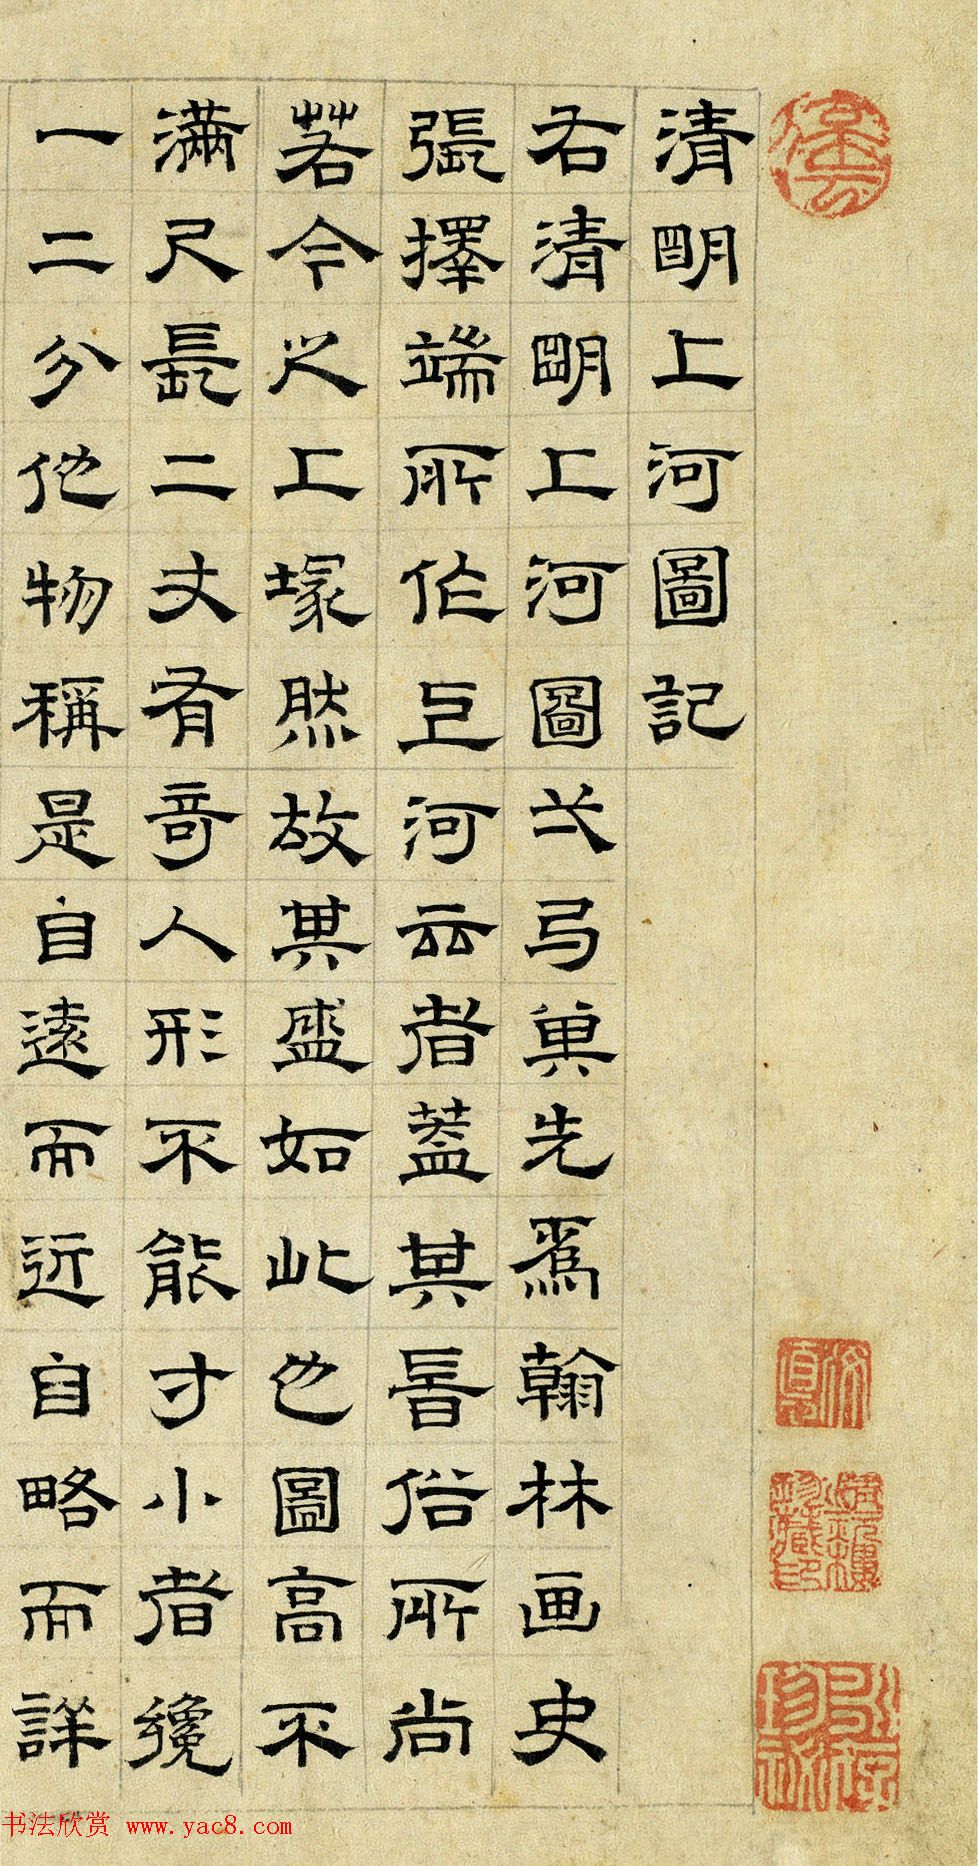 清明上河圖記
右清明上河圖弌弓先爲翰林画史
張擇端所作上河云者蓋其旹俗所尚
若今之上塚然故其盛如此也圖高不
滿尺長二丈有奇人形不能寸小者纔
一二分他物稱是自遠而近自略而詳
书法欣赏 www.yac8.com